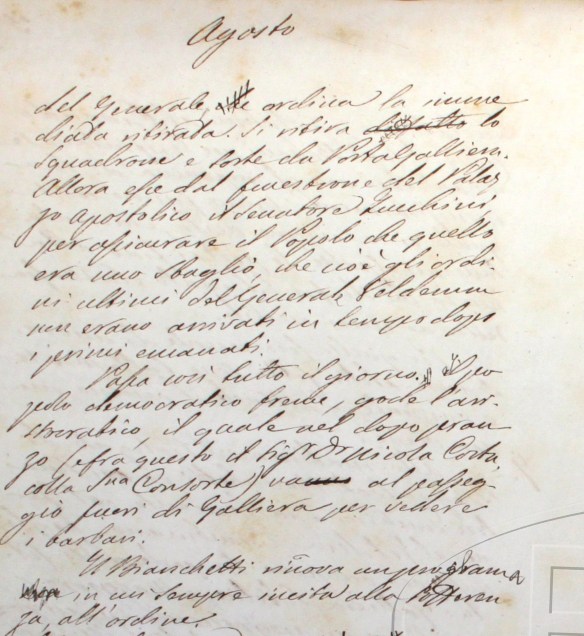 Agosto
del Generale, ordina la imme
diata ritirata. Si ritira lo
Squadrone e sorte da Porta Galliera.
Allora esce dal finestrone del Palaz
zo Apostolico il Senatore Zucchini
per assicurare il Popolo che quello
era uno Sbaglio, che cioè gli ordi-
ni ultimi del General Veldemm
non erano arrivati in tempo dopo
i primi emanati.
Passa così tutto il giorno. Il po
polo democratico freme, gode l'ari
stocratico, il quale nel dopo pran
zo (e fra questo il Sigr. Dr. Nicola Costa
colla Sua Consorte) va al passeg-
gio fuori di Galliera per vedere
i barbari.
Il Bianchetti rinnova un programma
in cui sempre incita alla
za, all'ordine